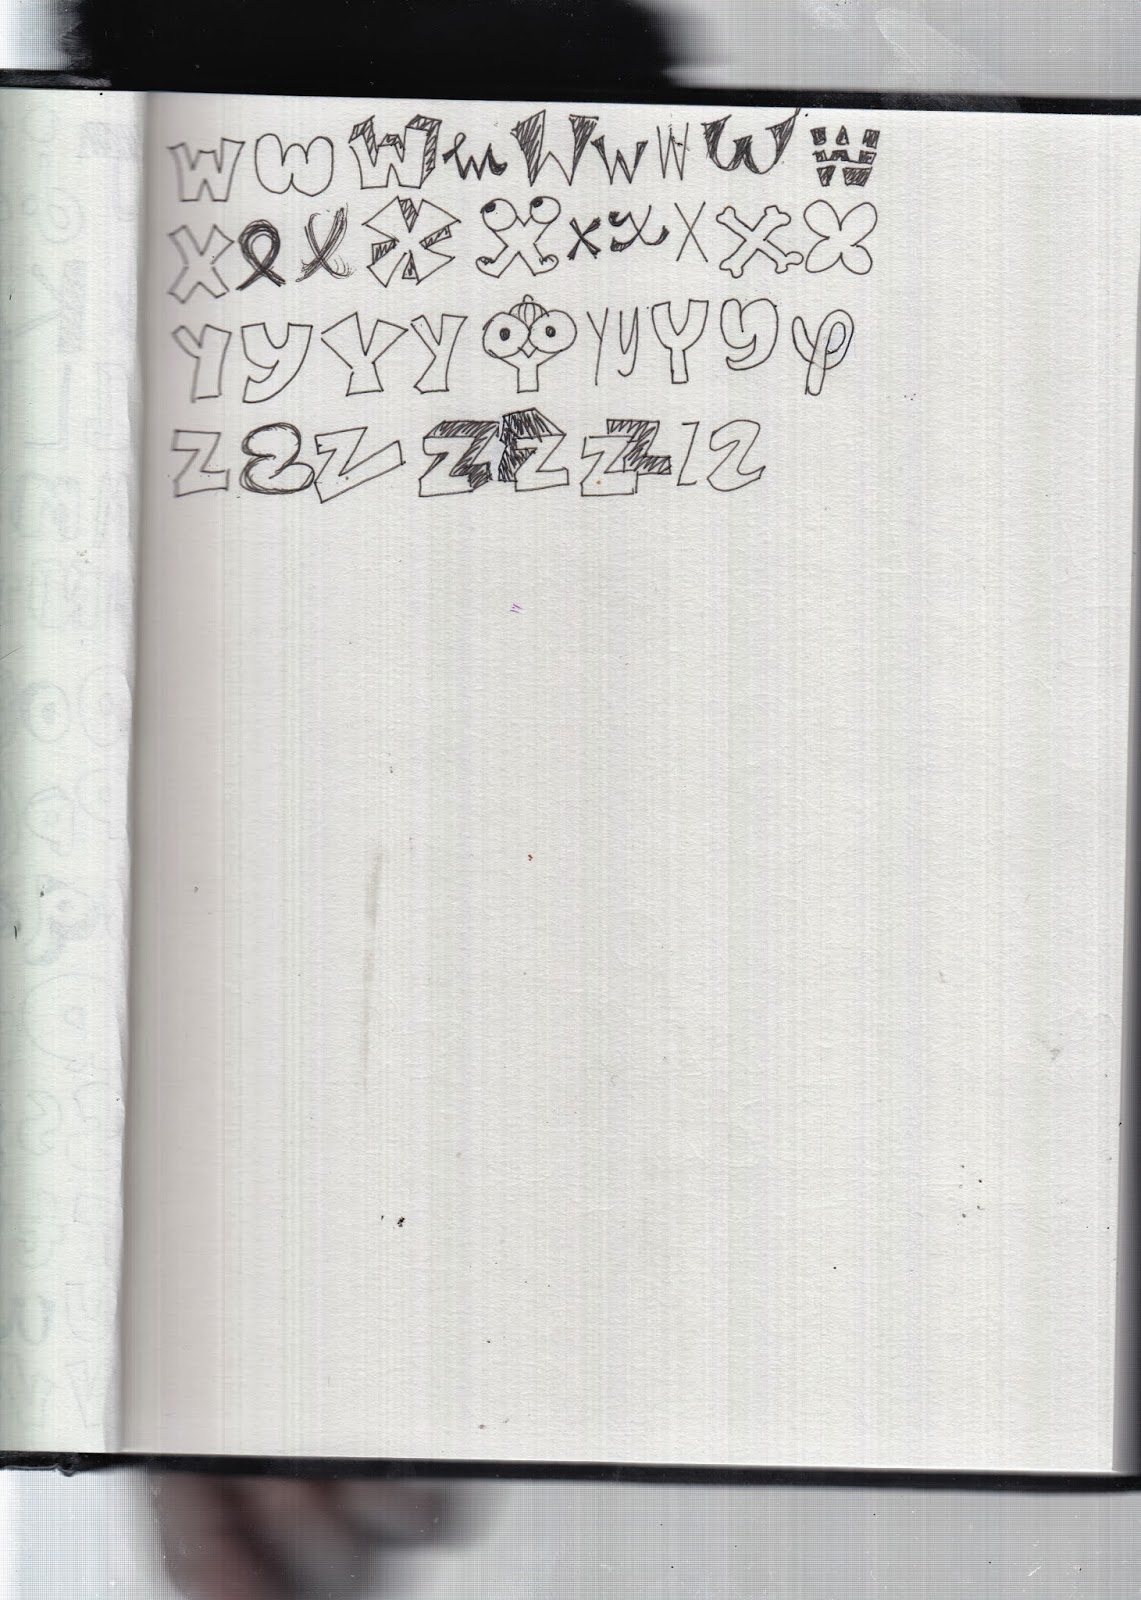 W w W w W w W w W
X x x X X x x X X X
Y y Y Y Y Y y Y y y
Z Z Z Z Z Z Z Z